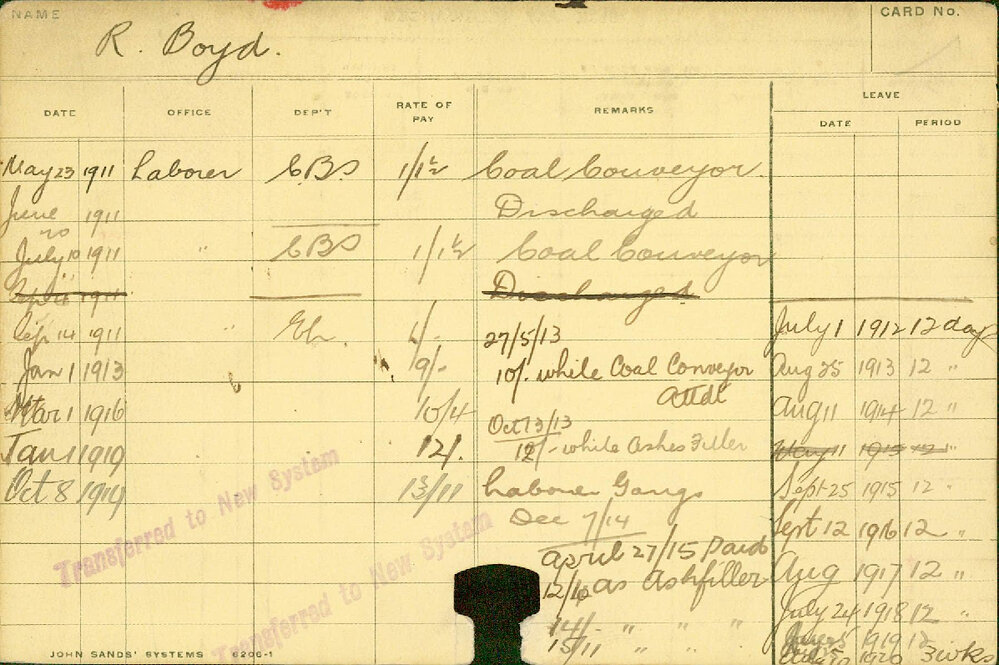 NAME
CARD No.
R. Boyd.
DATE OFFICE DEP'T RATE OF PAY REMARKS LEAVE
DATE PERIOD
May 23 1911 Laborer CBS 1/1½ Coal Conveyor.
June 20 1911 Discharged
July 10 1911 " CBS 1/1½ Coal Conveyor
Sept 1911 Discharged
Sep 14 1911 " 27/5/13 July 1 1912 12 days
Jan 1 1913 9/- 10/- while Coal Conveyor Attdt Aug 25 1913 12 "
Mar 1 1916 10/4 Oct 13/13 Aug 11 1914 12 "
Jan 1 1919 12/- 12/- while Ashes Filler May 11 1915 12 "
Oct 8 1919 13/11 Laborer Gangs Sept 25 1915 12 "
Dec 7/14 Sept 12 1916 12 "
April 27/15 Paid
12/6 as Ashfiller Aug 1917 12 "
14/- " " " July 24 1918 12 "
15/11 " " " 1919 12
1920 3 wks
Transferred to New System
Transferred to New System
JOHN SANDS' SYSTEMS 6206-1